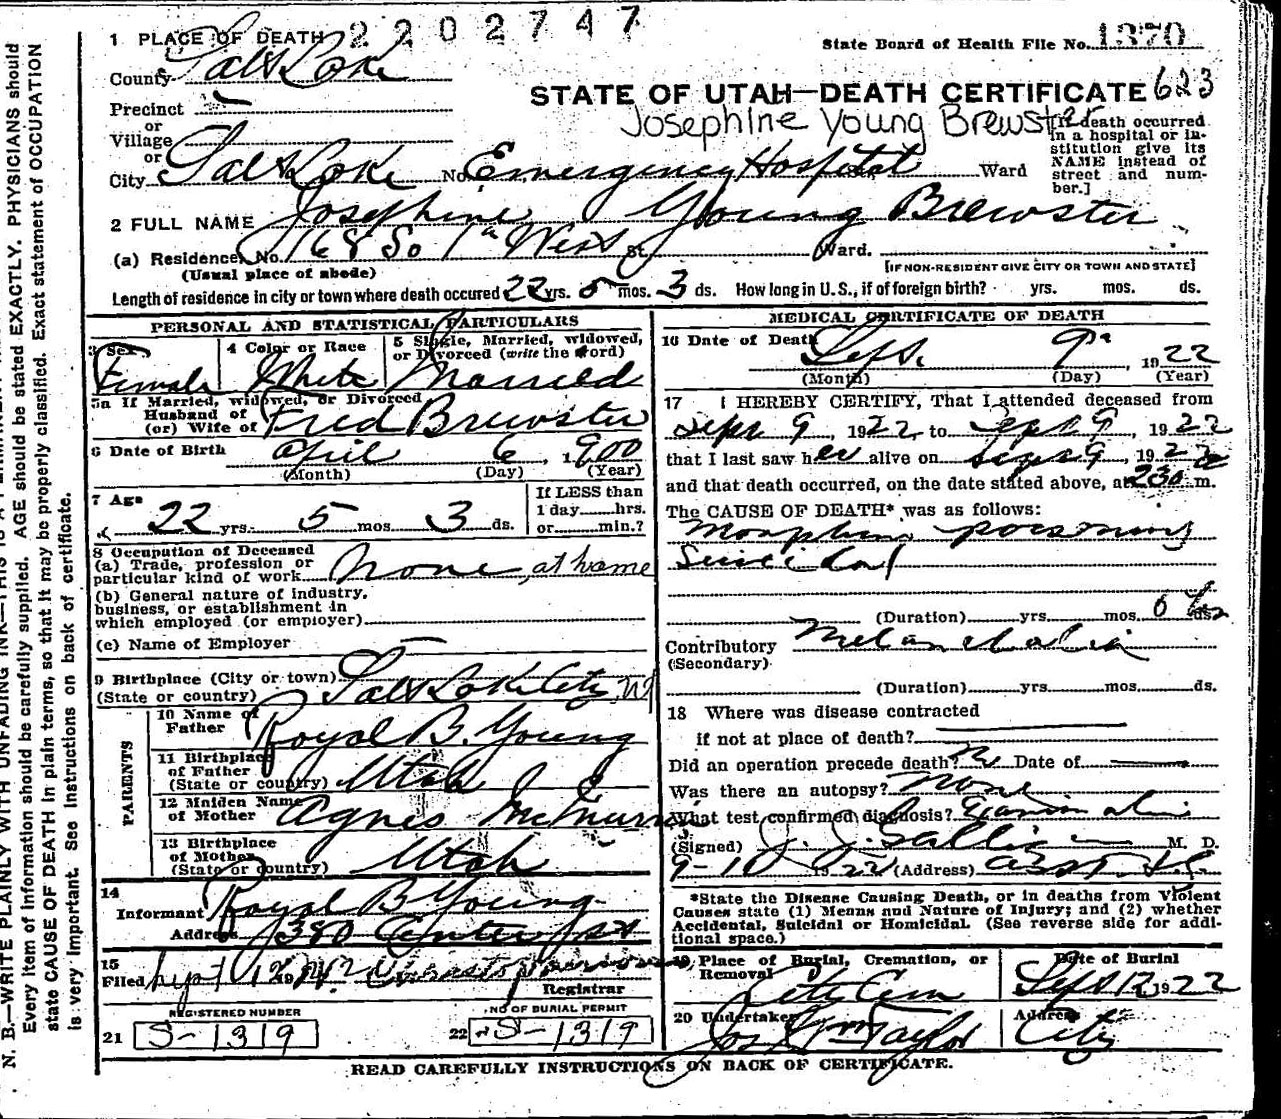 2202747
1 PLACE OF DEATH
State Board of Health File No. 1370
County Salt Lake
STATE OF UTAH—DEATH CERTIFICATE 623
Precinct
or
Village
or
Josephine Young Brewster
[If death occurred in a hospital or institution give its NAME instead of street and number.]
City Salt Lake No. Emergency Hospital St. Ward
2 FULL NAME Josephine Young Brewster
(a) Residence, No. 168 So 1st West St. Ward.
(Usual place of abode)
[IF NON-RESIDENT GIVE CITY OR TOWN AND STATE]
Length of residence in city or town where death occured 22 yrs. 5 mos. 3 ds. How long in U.S., if of foreign birth? yrs. mos. ds.
PERSONAL AND STATISTICAL PARTICULARS
3 Sex
Female
4 Color or Race
White
5 Single, Married, widowed, or Divorced (write the word)
Married
5a If Married, widowed, or Divorced
Husband of
(or) Wife of Fred Brewster
6 Date of Birth April 6, 1900
(Month) (Day) (Year)
7 Age
22 yrs. 5 mos. 3 ds.
If LESS than
1 day hrs.
or min.?
8 Occupation of Deceased
(a) Trade, profession or
particular kind of work None, at home
(b) General nature of industry,
business, or establishment in
which employed (or employer)
(c) Name of Employer
9 Birthplace (City or town) Salt Lake City
(State or country)
PARENTS
10 Name of
Father Royal B. Young
11 Birthplace
of Father
(State or country) Utah
12 Maiden Name
of Mother Agnes
13 Birthplace
of Mother
(State or country) Utah
14
Informant Royal B Young
Address 380 Center St
15
Filed Sept 12 19
Registrar
REGISTERED NUMBER
21 S-1319
NO OF BURIAL PERMIT
22 S-1319
MEDICAL CERTIFICATE OF DEATH
16 Date of Death Sept. 9, 1922
(Month) (Day) (Year)
17 I HEREBY CERTIFY, That I attended deceased from
Sept 9, 1922 to Sept 9, 1922
that I last saw her alive on Sept 9, 1922
and that death occurred, on the date stated above, at 230 m.
The CAUSE OF DEATH* was as follows:
Morphine poisoning
Suicidal
(Duration) yrs. mos. ds.
Contributory Melancholia
(Secondary)
(Duration) yrs. mos. ds.
18 Where was disease contracted
if not at place of death?
Did an operation precede death? Date of
Was there an autopsy? None
What test confirmed diagnosis?
(Signed) J. J. M. D.
9-10 1922 (Address)
*State the Disease Causing Death, or in deaths from Violent
Causes state (1) Means and Nature of Injury; and (2) whether
Accidental, Suicidal or Homicidal. (See reverse side for addi-
tional space.)
19 Place of Burial, Cremation, or
Removal
City Cem
Date of Burial
Sept 12 1922
20 Undertaker
Jos Wm Taylor
Address
City
READ CAREFULLY INSTRUCTIONS ON BACK OF CERTIFICATE.
Every item of information should be carefully supplied. AGE should be stated EXACTLY. PHYSICIANS should
state CAUSE OF DEATH in plain terms, so that it may be properly classified. Exact statement of OCCUPATION
is very important. See instructions on back of certificate.